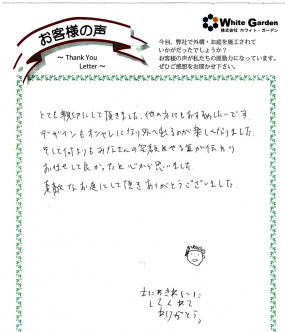 White Garden
株式会社 ホワイト・ガーデン
お客様の声
～ Thank You
Letter ～
今回、弊社で外構・お庭を施工されて
いかがだったでしょうか？
お客様の声が私たちの原動力になっています。
ぜひご感想をお聞かせ下さい。
とても親切にして頂きました。他の方にもおすすめしたいです。
デザインもオシャレになり外へ出るのが楽しくなりました。
そして何よりもみなさんの笑顔とやる気が伝わり
お任せして良かったと心から思いました。
素敵なお庭にして頂きありがとうございました。
おにわきれいに
してくれて
ありがとう。